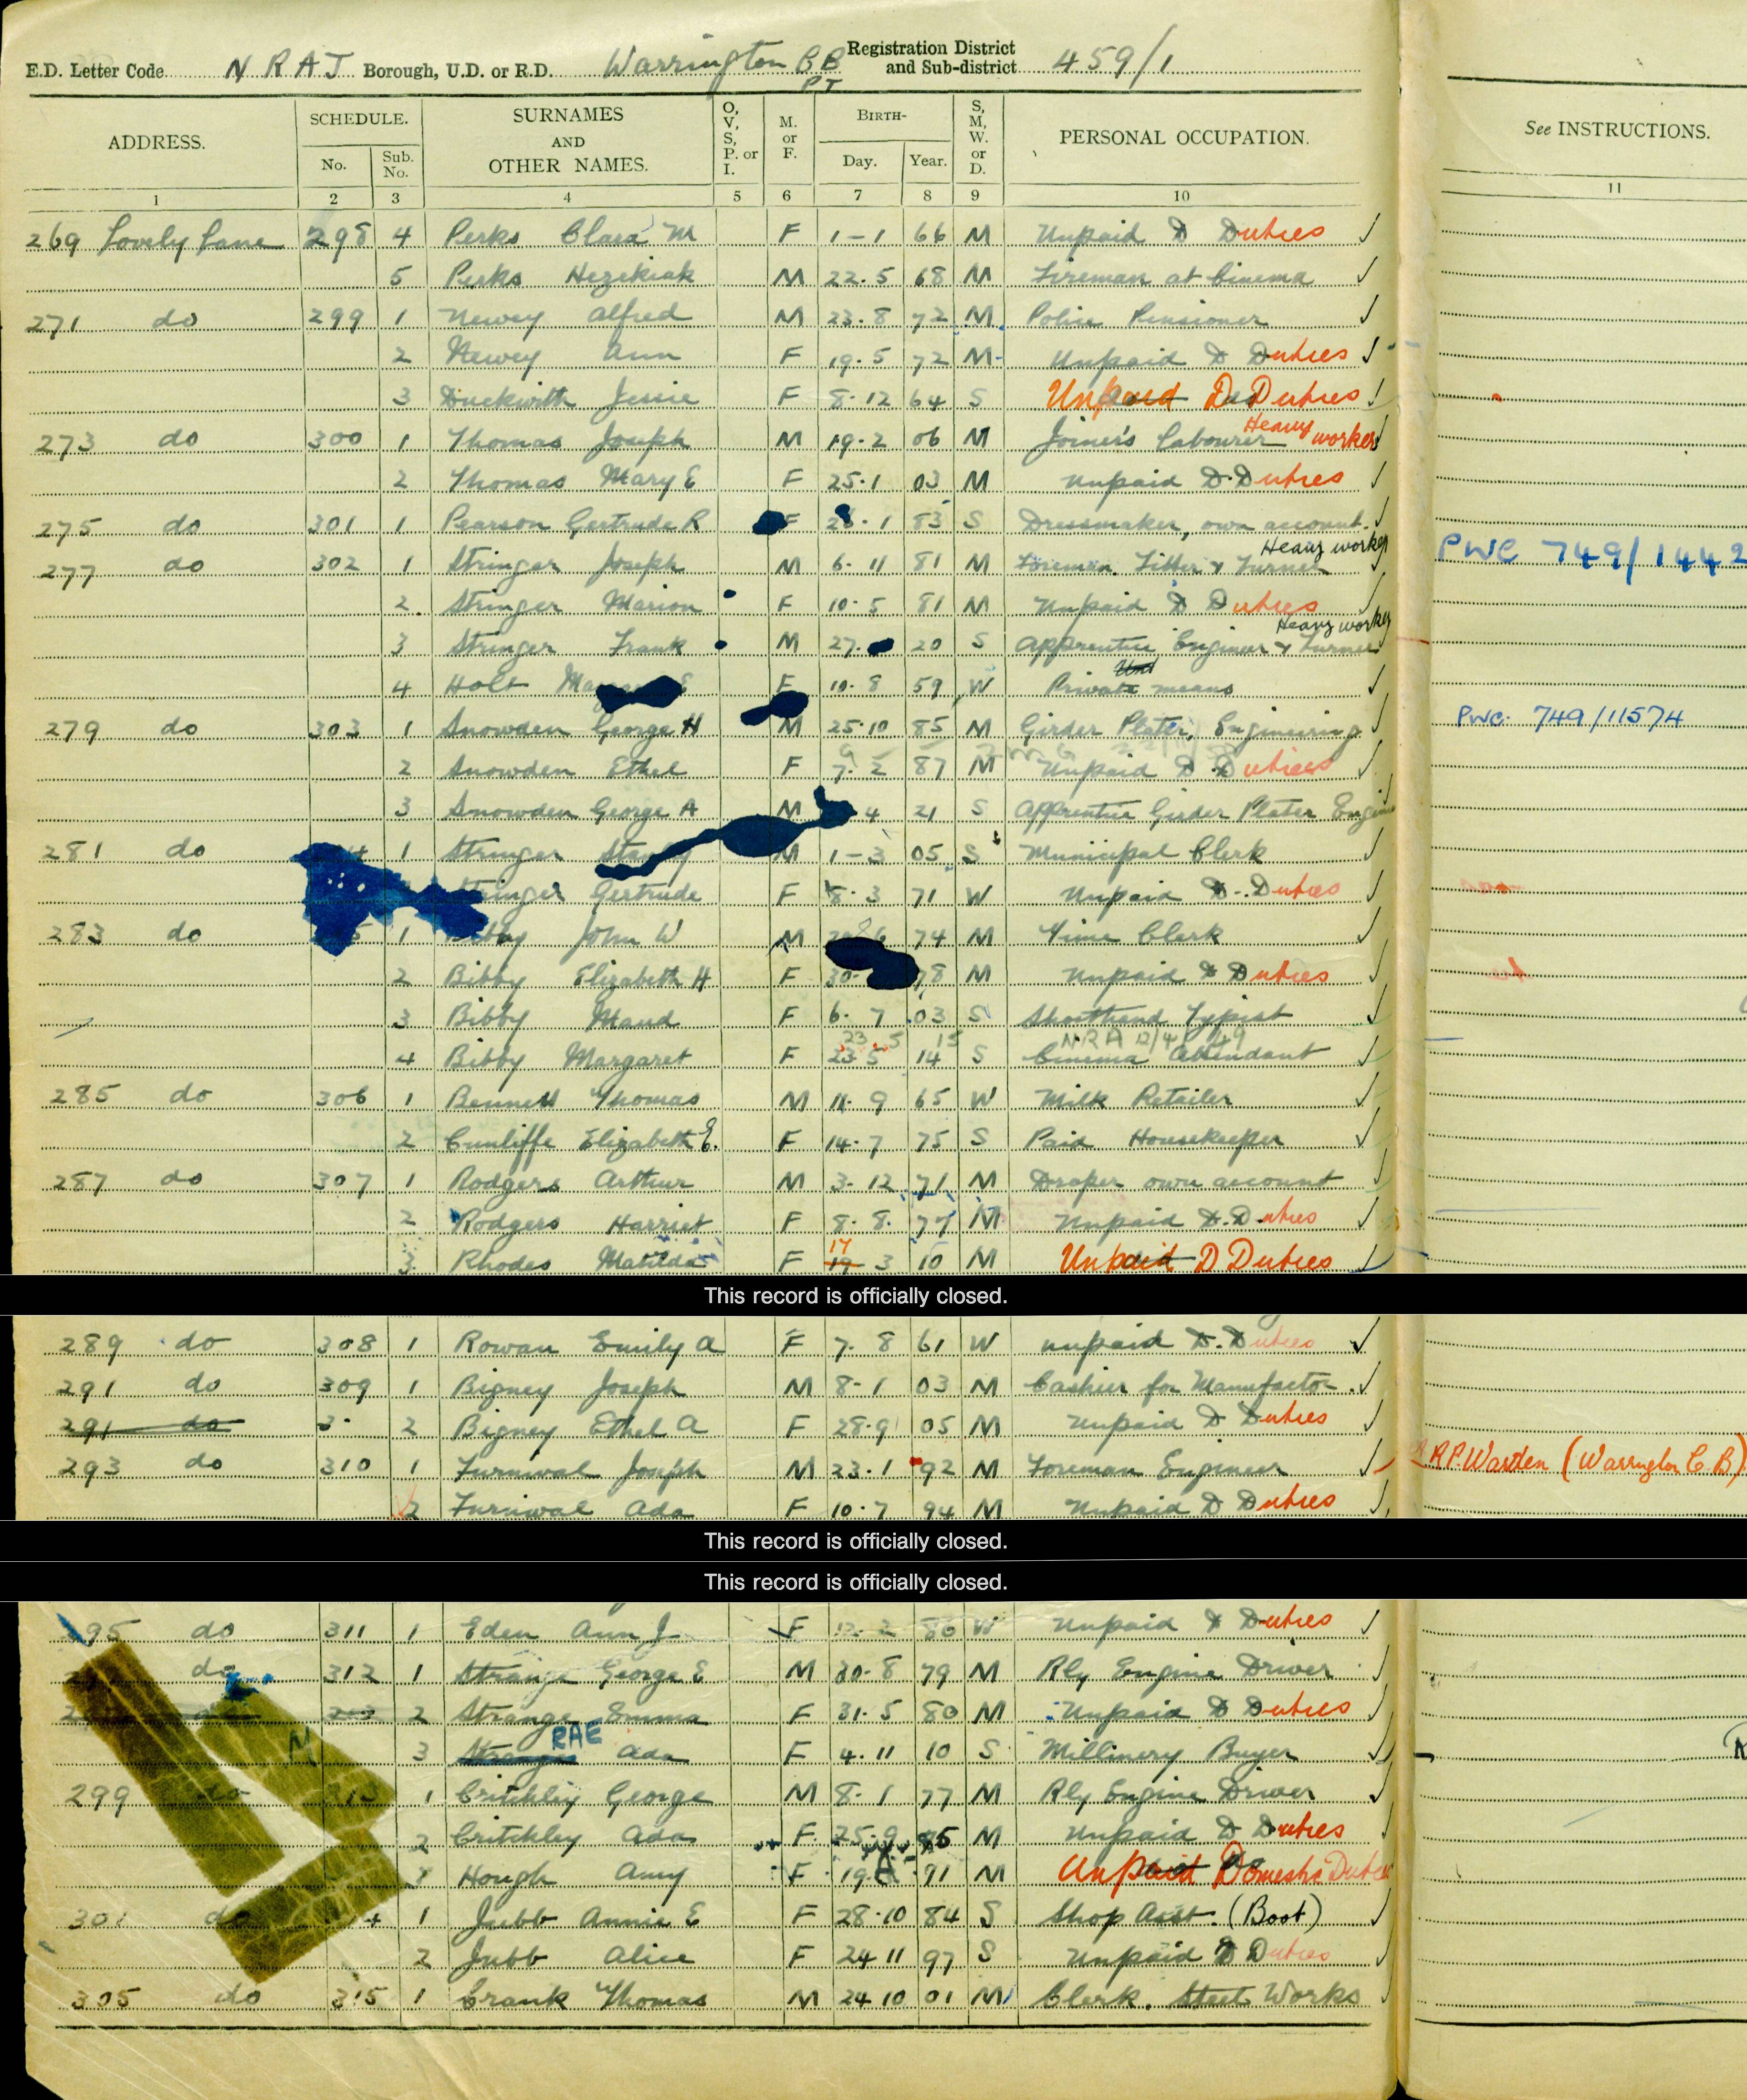 E.D. Letter Code N R A J Borough, U.D. or R.D. Warrington C B PT Registration District and Sub-district 459/1
ADDRESS. SCHEDULE. No. Sub. No. SURNAMES AND OTHER NAMES. O, V, S, P. or I. M. or F. BIRTH- Day. Year. S, M, W. or D. PERSONAL OCCUPATION. See INSTRUCTIONS.
1 2 3 4 5 6 7 8 9 10 11
269 Lovely Lane 298 4 Perks Clara M F 1-1 66 M Unpaid D Duties
5 Perks Hezekiah M 22.5 68 M Fireman at Cinema
271 do 299 1 Newey Alfred M 23.8 72 M Police Pensioner
2 Newey Ann F 19.5 72 M Unpaid D Duties
3 Duckwith Jessie F 8.12 64 S Unpaid D Duties
273 do 300 1 Thomas Joseph M 19.2 06 M Joiner's Labourer Heavy worker
2 Thomas Mary E F 25.1 03 M Unpaid D.Duties
275 do 301 1 Pearson Gertrude R F .1 83 S Dressmaker, own account.
277 do 302 1 Stringer Joseph M 6.11 81 M Foreman Fitter & Turner Heavy worker PWC 749/1442
2. Stringer Marion F 10.5 81 M Unpaid D Duties
3 Stringer Frank M 27. 20 S Apprentice Engineer & Turner Heavy worker
4 Holt E F 10.8 59 W Private means
279 do 303 1 Snowden George H M 25.10 85 M Girder Plater, Engineering PWC. 749/11574
2 Snowden Ethel F 7.2 87 M Unpaid D Duties
3 Snowden George A M 4 21 S Apprentice Girder Plater Engin
281 do 1 Stringer Stanley M 1-3 05 S Municipal Clerk
Stringer Gertrude F 8.3 71 W Unpaid D.Duties
283 do 1 John W M 74 M Time Clerk
2 Bibby Elizabeth H F 30. 78 M Unpaid D Duties
3 Bibby Maud F 6.7 03 S Shorthand Typist
23.5 15 NRA
4 Bibby Margaret F 23.5 14 S Cinema Attendant
285 do 306 1 Bennett Thomas M 11.9 65 W Milk Retailer
2 Cunliffe Elizabeth E. F 14.7 75 S Paid Housekeeper
287 do 307 1 Rodgers Arthur M 3.12 71 M Draper own account
2 Rodgers Harriet F 8.8. 77 M Unpaid D.Duties
3 Rhodes Matilda F 17 19 3 10 M Unpaid D Duties
This record is officially closed.
289 do 308 1 Rowan Emily A F 7.8 61 W Unpaid D.Duties
291 do 309 1 Bigney Joseph M 8.1 03 M Cashier for Manufactor.
291 do 3 2 Bigney Ethel A F 28.9 05 M Unpaid D Duties
293 do 310 1 Furnival Joseph M 23.1 92 M Foreman Engineer ARP Warden (Warrington C.B)
2 Furnival Ada F 10.7 94 M Unpaid D Duties
This record is officially closed.
This record is officially closed.
95 do 311 1 Eden Ann J F 12.2 80 W Unpaid D Duties
do 312 1 Strange George E M 30.8 79 M Rly Engine Driver
2 Strange Emma F 31.5 80 M Unpaid D Duties
M 3 Strange RAE Ada F 4.11 10 S Millinery Buyer
299 do 1 Critchley George M 8.1 77 M Rly Engine Driver
2 Critchley Ada F 25.9 85 M Unpaid D Duties
3 Hough Amy F 19. 91 M Unpaid Domestic Duties
301 do 4 1 Jubb Annie E F 28.10 84 S Shop Asst. (Boot)
2 Jubb Alice F 24 11 97 S Unpaid D Duties
305 do 315 1 Crank Thomas M 24 10 01 M Clerk. Steel Works